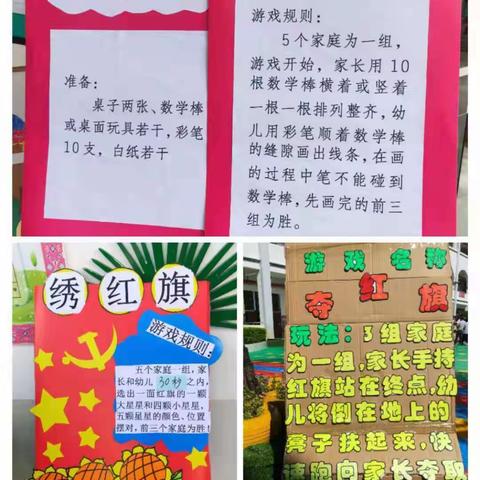 准备:
桌子两张、数学棒
或桌面玩具若干,彩笔
10支,白纸若干
游戏规则:
5个家庭为一组,
游戏开始,家长用10
根数学棒横着或竖着
一根一根排列整齐,幼
儿用彩笔顺着数学棒
的缝隙画出线条,在画
的过程中笔不能碰到
数学棒,先画完的前三
组为胜。
绣红旗
游戏规则:
五个家庭一组,家
长和幼儿30秒之内,
选出一面红旗的一颗
大星星和四颗小星星,
五颗星星的颜色、位置
摆对,前三个家庭为胜!
游戏名称
夺红旗
玩法:3组家庭
为一组,家长手持
红旗站在终点,幼
儿将倒在地上的
凳子扶起来,快
速跑向家长夺取